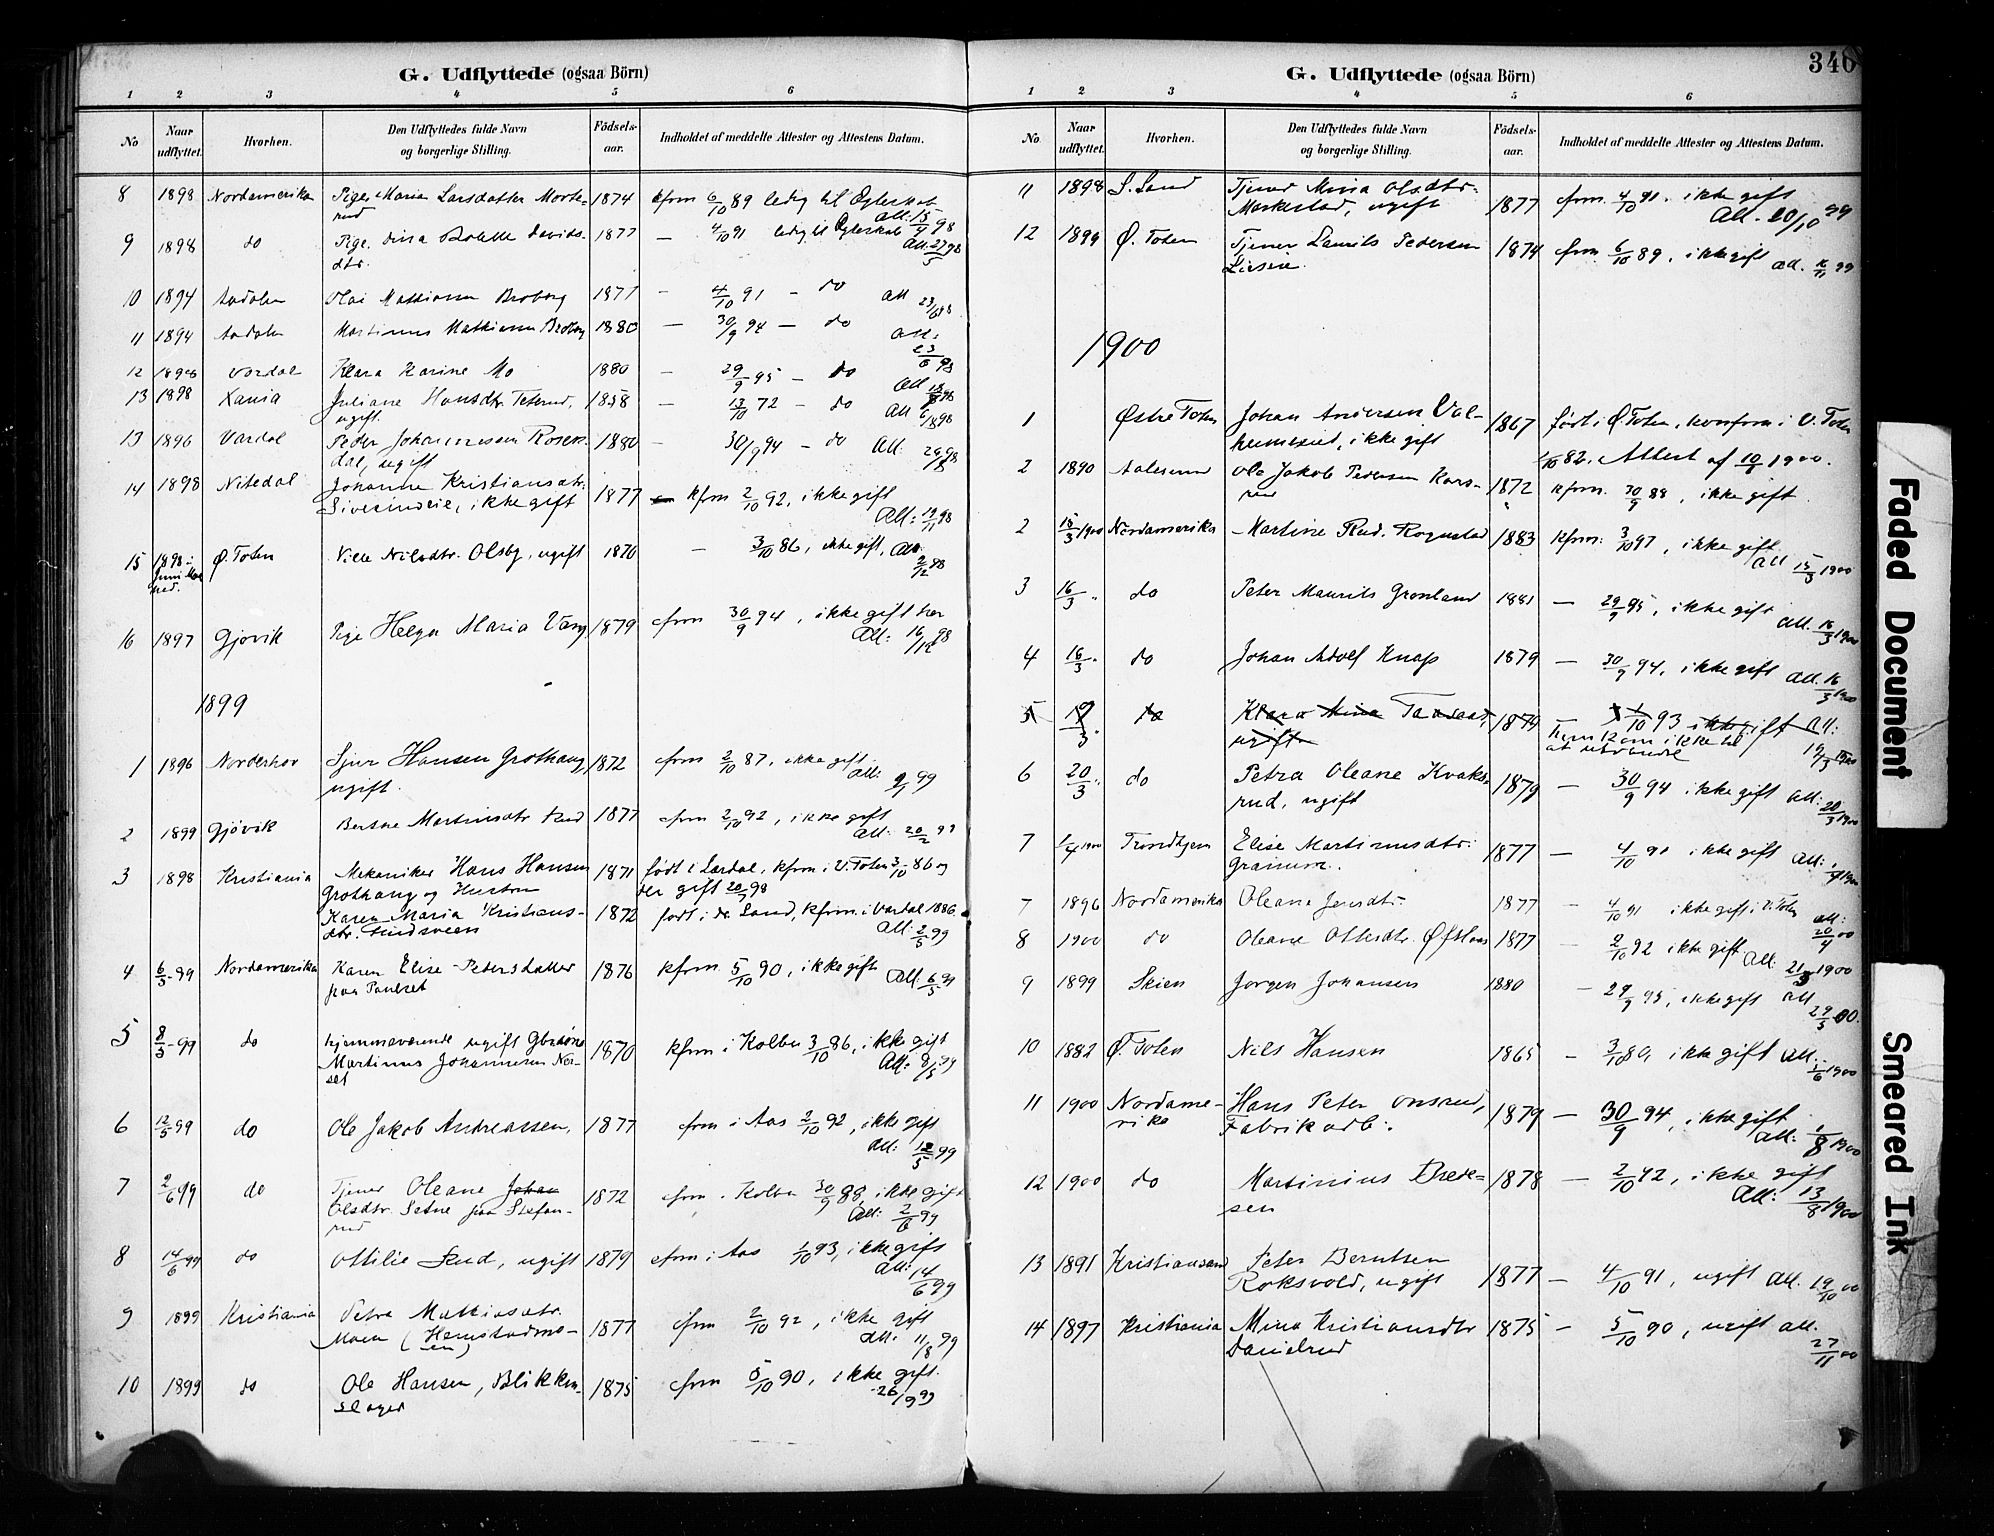 G. Udflyttede (ogsaa Börn)
1 2 3 4 5 6
No
Naar udflyttet.
Hvorhen.
Den Udflyttedes fulde Navn og borgerlige Stilling.
Födsels-aar.
Indholdet af meddelte Attester og Attestens Datum.
8 1898 Nordamerika Pige Maria Larsdatter Morte- 1874 kfrm 6/10 89 ledig til Ægteskab
rud Att. 15/4 98
9 1898 do Pige Dina Bolette Davids- 1877 — 4/10 91 ledig til Ægteskab
dtr. Att. 27/5 98
10 1894 Aadalen Olai Mathisen Broberg 1877 — 4/10 91 — do Att 23/6 98
11 1894 Aadalen Martinus Mathisen Broberg 1880 — 30/9 94 — do Att: 23/6 98
12 1898 Vardal Klara Karine Mo 1880 — 29/9 95 — do Att
13 1898 Xania Juliane Hansdtr. Teterud, 1858 — 13/10 72 — do Att 6/8 98
ugift
13 1896 Vardal Peder Johannessen Rosen- 1880 — 30/9 94 — do Att: 29/8 98
dal, ugift
14 1898 Nitedal Johanne Kristiansdtr. 1877 kfrm 2/10 92, ikke gift
Sivesindeie, ikke gift Att: 19/11 98
15 1898 i Juni Maaned. Ø. Toten Nilsdtr. Olsby, ugift 1870 — 3/10 86, ikke gift, Att: 2/12 98
16 1897 Gjøvik Pige Helga Maria Vang 1879 cfrm 30/9 94, ikke gift her
Att: 16/12 98
1899
1 1896 Norderhov Sjur Hansen Grothaug, 1872 cfrm 2/10 87, ikke gift
ugift. Att: 99
2 1899 Gjövik Berthe Martinsdtr. 1877 cfrm 2/10 92, ikke gift
Att: 20/2 99
3 1898 Kristiania Mekaniker Hans Hansen 1871 født i Lærdal, kfrm. i V. Toten 3/10 86 og
Grothaug og Hustru der gift 98
Karen Maria Kristians- 1872 født i Land, kfrm. i Vardal 1886.
dtr. Lindsveen Att: 2/5 99
4 6/3-99 Nordamerika Karen Elise Petersdatter 1876 kfrm 5/10 90, ikke gift Att. 6/3 99
paa Paulset
5 8/3-99 do hjemmeværende ugift Gbrsøn 1870 kfrm i Kolbu 3/10 86, ikke gift
Martinus Johannesen Nor- Att: 8/3 99
set
6 12/5 99 do Ole Jakob Andreassen, 1877 cfrm i Aas 2/10 92, ikke gift
Att: 12/5 99
7 2/6 99 do Tjener Oleane Johan 1872 cfrm i Kolbu 30/9 88, ikke gift
Olsdtr. Setne paa Stefan- Att: 2/6 99
rud
8 14/6 99 do Ottilie Lund, ugift 1879 cfrm i Aas 1/10 93, ikke gift
Att: 14/6 99
9 1899 Kristiania Petra Mathisdtr. 1877 cfrm 2/10 92, ikke gift
Moen Att: 11/8 99
10 1899 do Ole Hansen, Blikken- 1875 cfrm 5/10 90, ikke gift.
slager 26/9 99
G. Udflyttede (ogsaa Börn)
340
1 2 3 4 5 6
No
Naar udflyttet.
Hvorhen.
Den Udflyttedes fulde Navn og borgerlige Stilling.
Födsels-aar.
Indholdet af meddelte Attester og Attestens Datum.
11 1898 S. Land Tjener Mina Olsdtr. 1877 cfrm. 4/10 91. ikke gift
Markestad, ugift Att. 20/10 99
12 1899 Ø. Toten Tjener Laurits Pedersen 1874 cfrm 6/10 89, ikke gift Att.
1900
1 Østre Toten Johan Andersen Val- 1867 født i Ø. Toten, konfirm. i V. Toten
heimseiet, ikke gift 1/10 82. Attest af 10/1 1900.
2 1890 Aalesund Ole Jakob Pedersen Kors- 1872 kfrm. 30/9 88, ikke gift.
rud
2 15/3 1900 Nordamerika Martine Rud. Rognstad 1883 kfrm: 3/10 97, ikke gift
Att 15/3 1900
3 16/3 " do Peter Maurits Grønland 1881 — 29/9 95, ikke gift Att. 16/3 1900
4 16/3 " do Johan Adolf Knap 1879 — 30/9 94, ikke gift Att. 16/3 1900
5 19/3. do Klara Mina 1879 1/10 93 ikke gift Att:
ugift 19/3 1900
6 20/3 " do Petra Oleane Kvaks- 1879 — 30/9 94 ikke gift Att: 20/3 1900
rud, ugift
7 1/4 1900 Trondhjem Elise Martinusdtr. 1877 — 4/10 91 ikke gift Att: 1/4 1900
Granum.
7 1896 Nordamerika Oleane Jensdtr. 1877 — 4/10 91 ikke gift i V. Toten Att: 20/4 00
8 1900 do Oleane Ottersdtr. 1877 — 2/10 92 ikke gift Att. 21/5 1900
9 1899 Skien Jørgen Johansen 1880 — 29/9 95, ikke gift Att 29/5 00.
10 1882 Ø. Toten Nils Hansen 1865 — 3/10 80, ikke gift Att. 5/6 1900
11 1900 Nordame- Hans Peter Onsrud, 1879 — 30/9 94, ikke gift
rika Fabrikarb. Att: 1/8 1900
12 1900 do Martinius Drere- 1878 — 2/10 92, ikke gift
sen Att: 13/8 1900
13 1891 Kristiansand Peter Berntsen
Roksvold, ugift 1877 — 4/10 91, ugift Att. 19/10 00
14 1897 Kristiania Mina Kristiansdtr 1875 — 5/10 90, ugift Att. 27/11 00
Danielrud
Faded Document
Smeared Ink